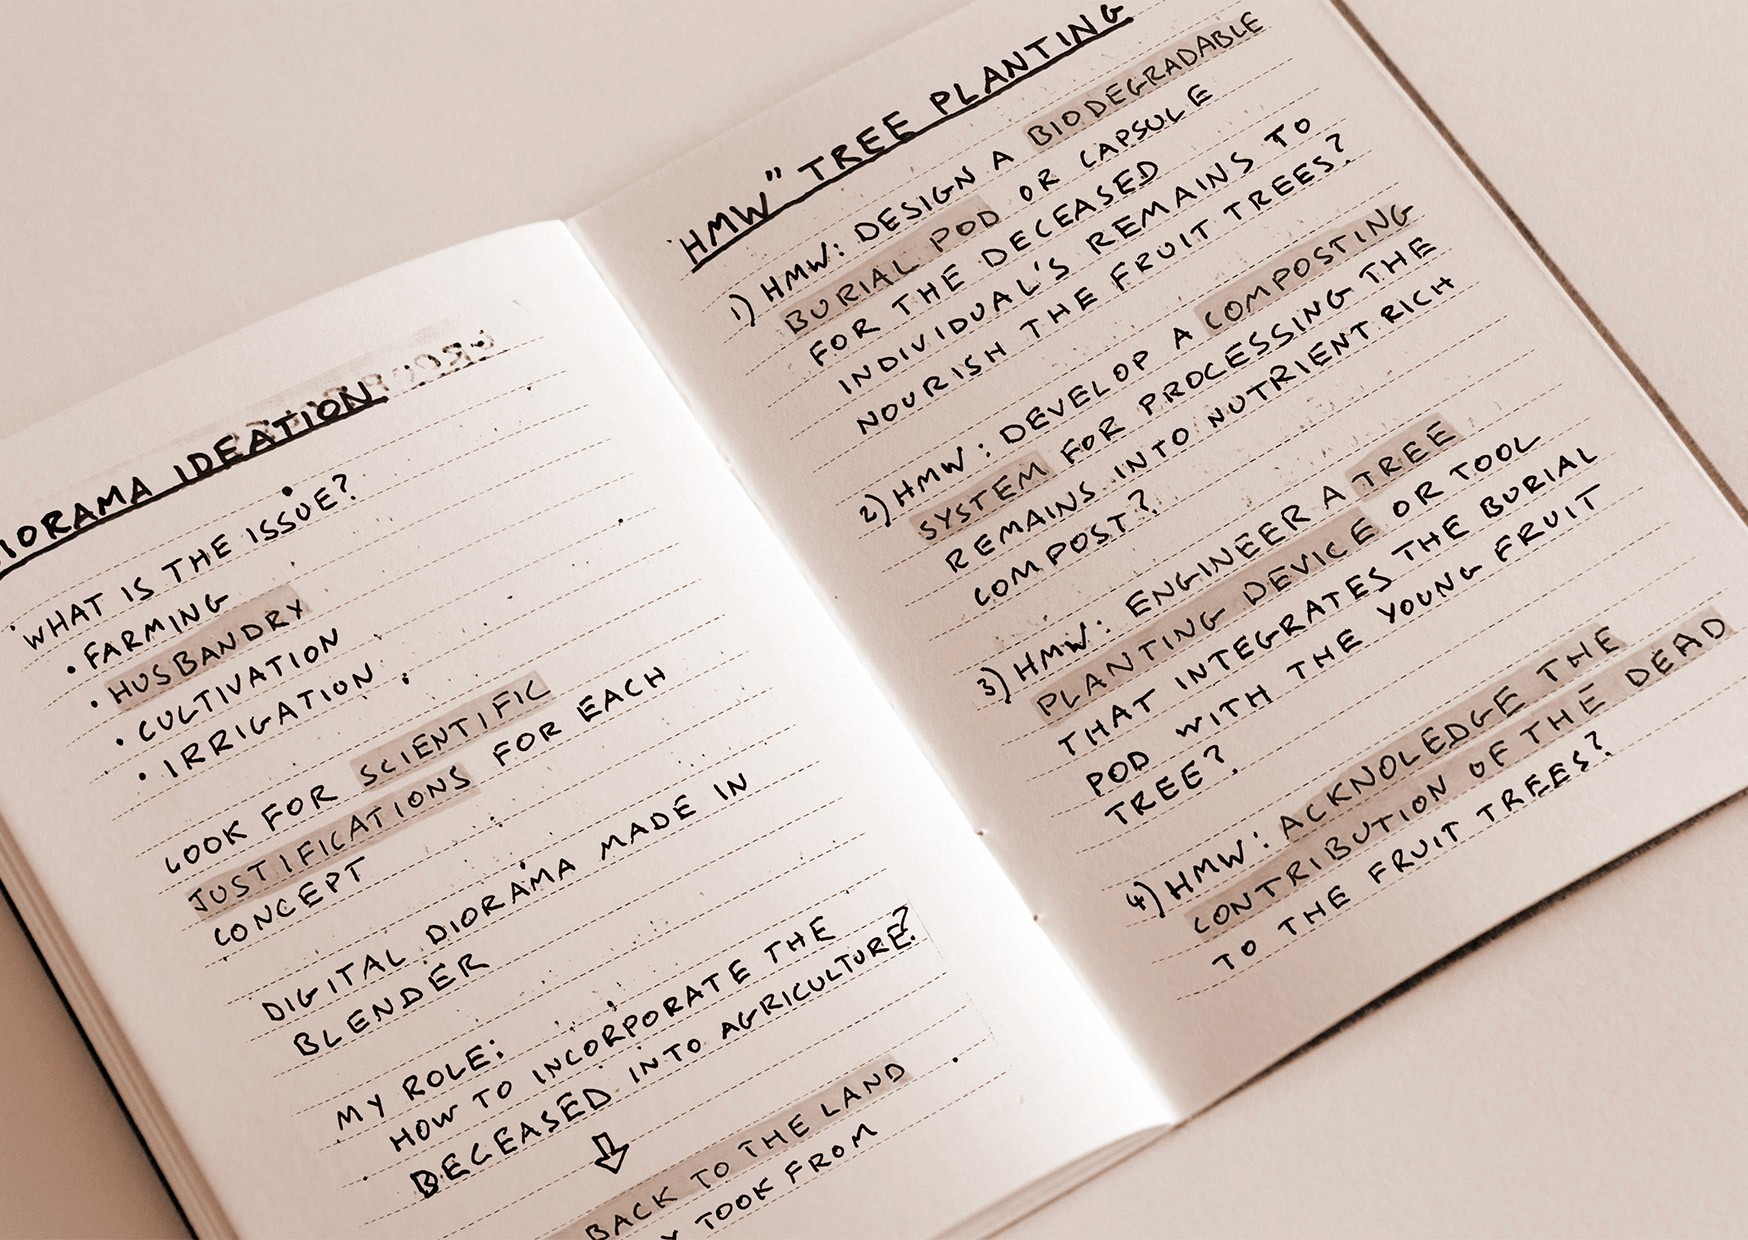 DIORAMA IDEATION
WHAT IS THE ISSUE?
• FARMING
• HUSBANDRY
• CULTIVATION
• IRRIGATION
LOOK FOR SCIENTIFIC
JUSTIFICATIONS FOR EACH
CONCEPT
DIGITAL DIORAMA MADE IN
BLENDER
MY ROLE:
HOW TO INCORPORATE THE
DECEASED INTO AGRICULTURE?
BACK TO THE LAND
TOOK FROM
HMW" TREE PLANTING
1) HMW: DESIGN A BIODEGRADABLE
BURIAL POD OR CAPSULE
FOR THE DECEASED
INDIVIDUAL'S REMAINS TO
NOURISH THE FRUIT TREES?
2) HMW: DEVELOP A COMPOSTING
SYSTEM FOR PROCESSING THE
REMAINS INTO NUTRIENT RICH
COMPOST?
3) HMW: ENGINEER A TREE
PLANTING DEVICE OR TOOL
THAT INTEGRATES THE BURIAL
POD WITH THE YOUNG FRUIT
TREE?
4) HMW: ACKNOLEDGE THE
CONTRIBUTION OF THE DEAD
TO THE FRUIT TREES?